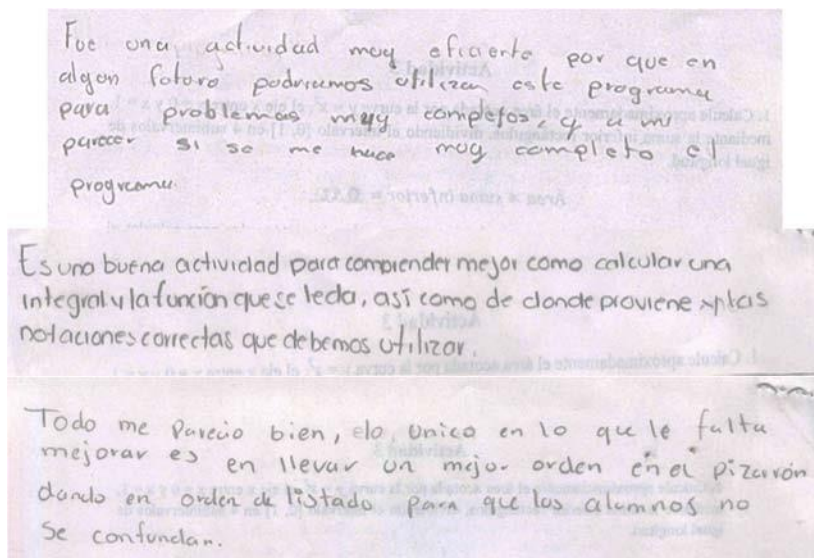 Fue una actividad muy eficiente por que en
algun futuro podriamos utilizar este programa
para problemas muy complejos, y a mi
parecer si se me hace muy completo el
programa.
Es una buena actividad para comprender mejor como calcular una
integral y la función que se le da, así como de donde proviene y las
notaciones correctas que debemos utilizar.
Todo me Parecio bien, elo unico en lo que le falta
mejorar es en llevar un mejor orden en el pizarrón
dando en orden de listado para que los alumnos no
Se confundan.